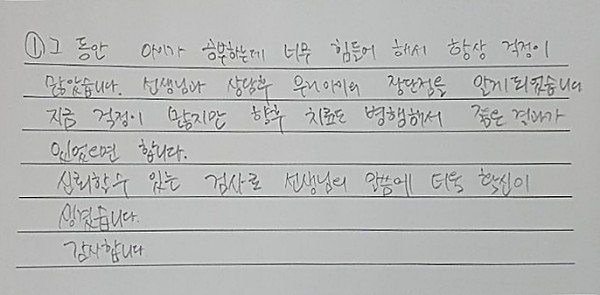 ① 그 동안 아이가 공부하는데 너무 힘들어 해서 항상 걱정이
많았습니다. 선생님과 상담후 우리아이의 장단점을 알게되었습니다
지금 걱정이 많지만 향후 치료도 병행해서 좋은 결과가
있었으면 합니다.
신뢰할수 있는 검사로 선생님의 말씀에 더욱 확신이
생겼습니다.
감사합니다